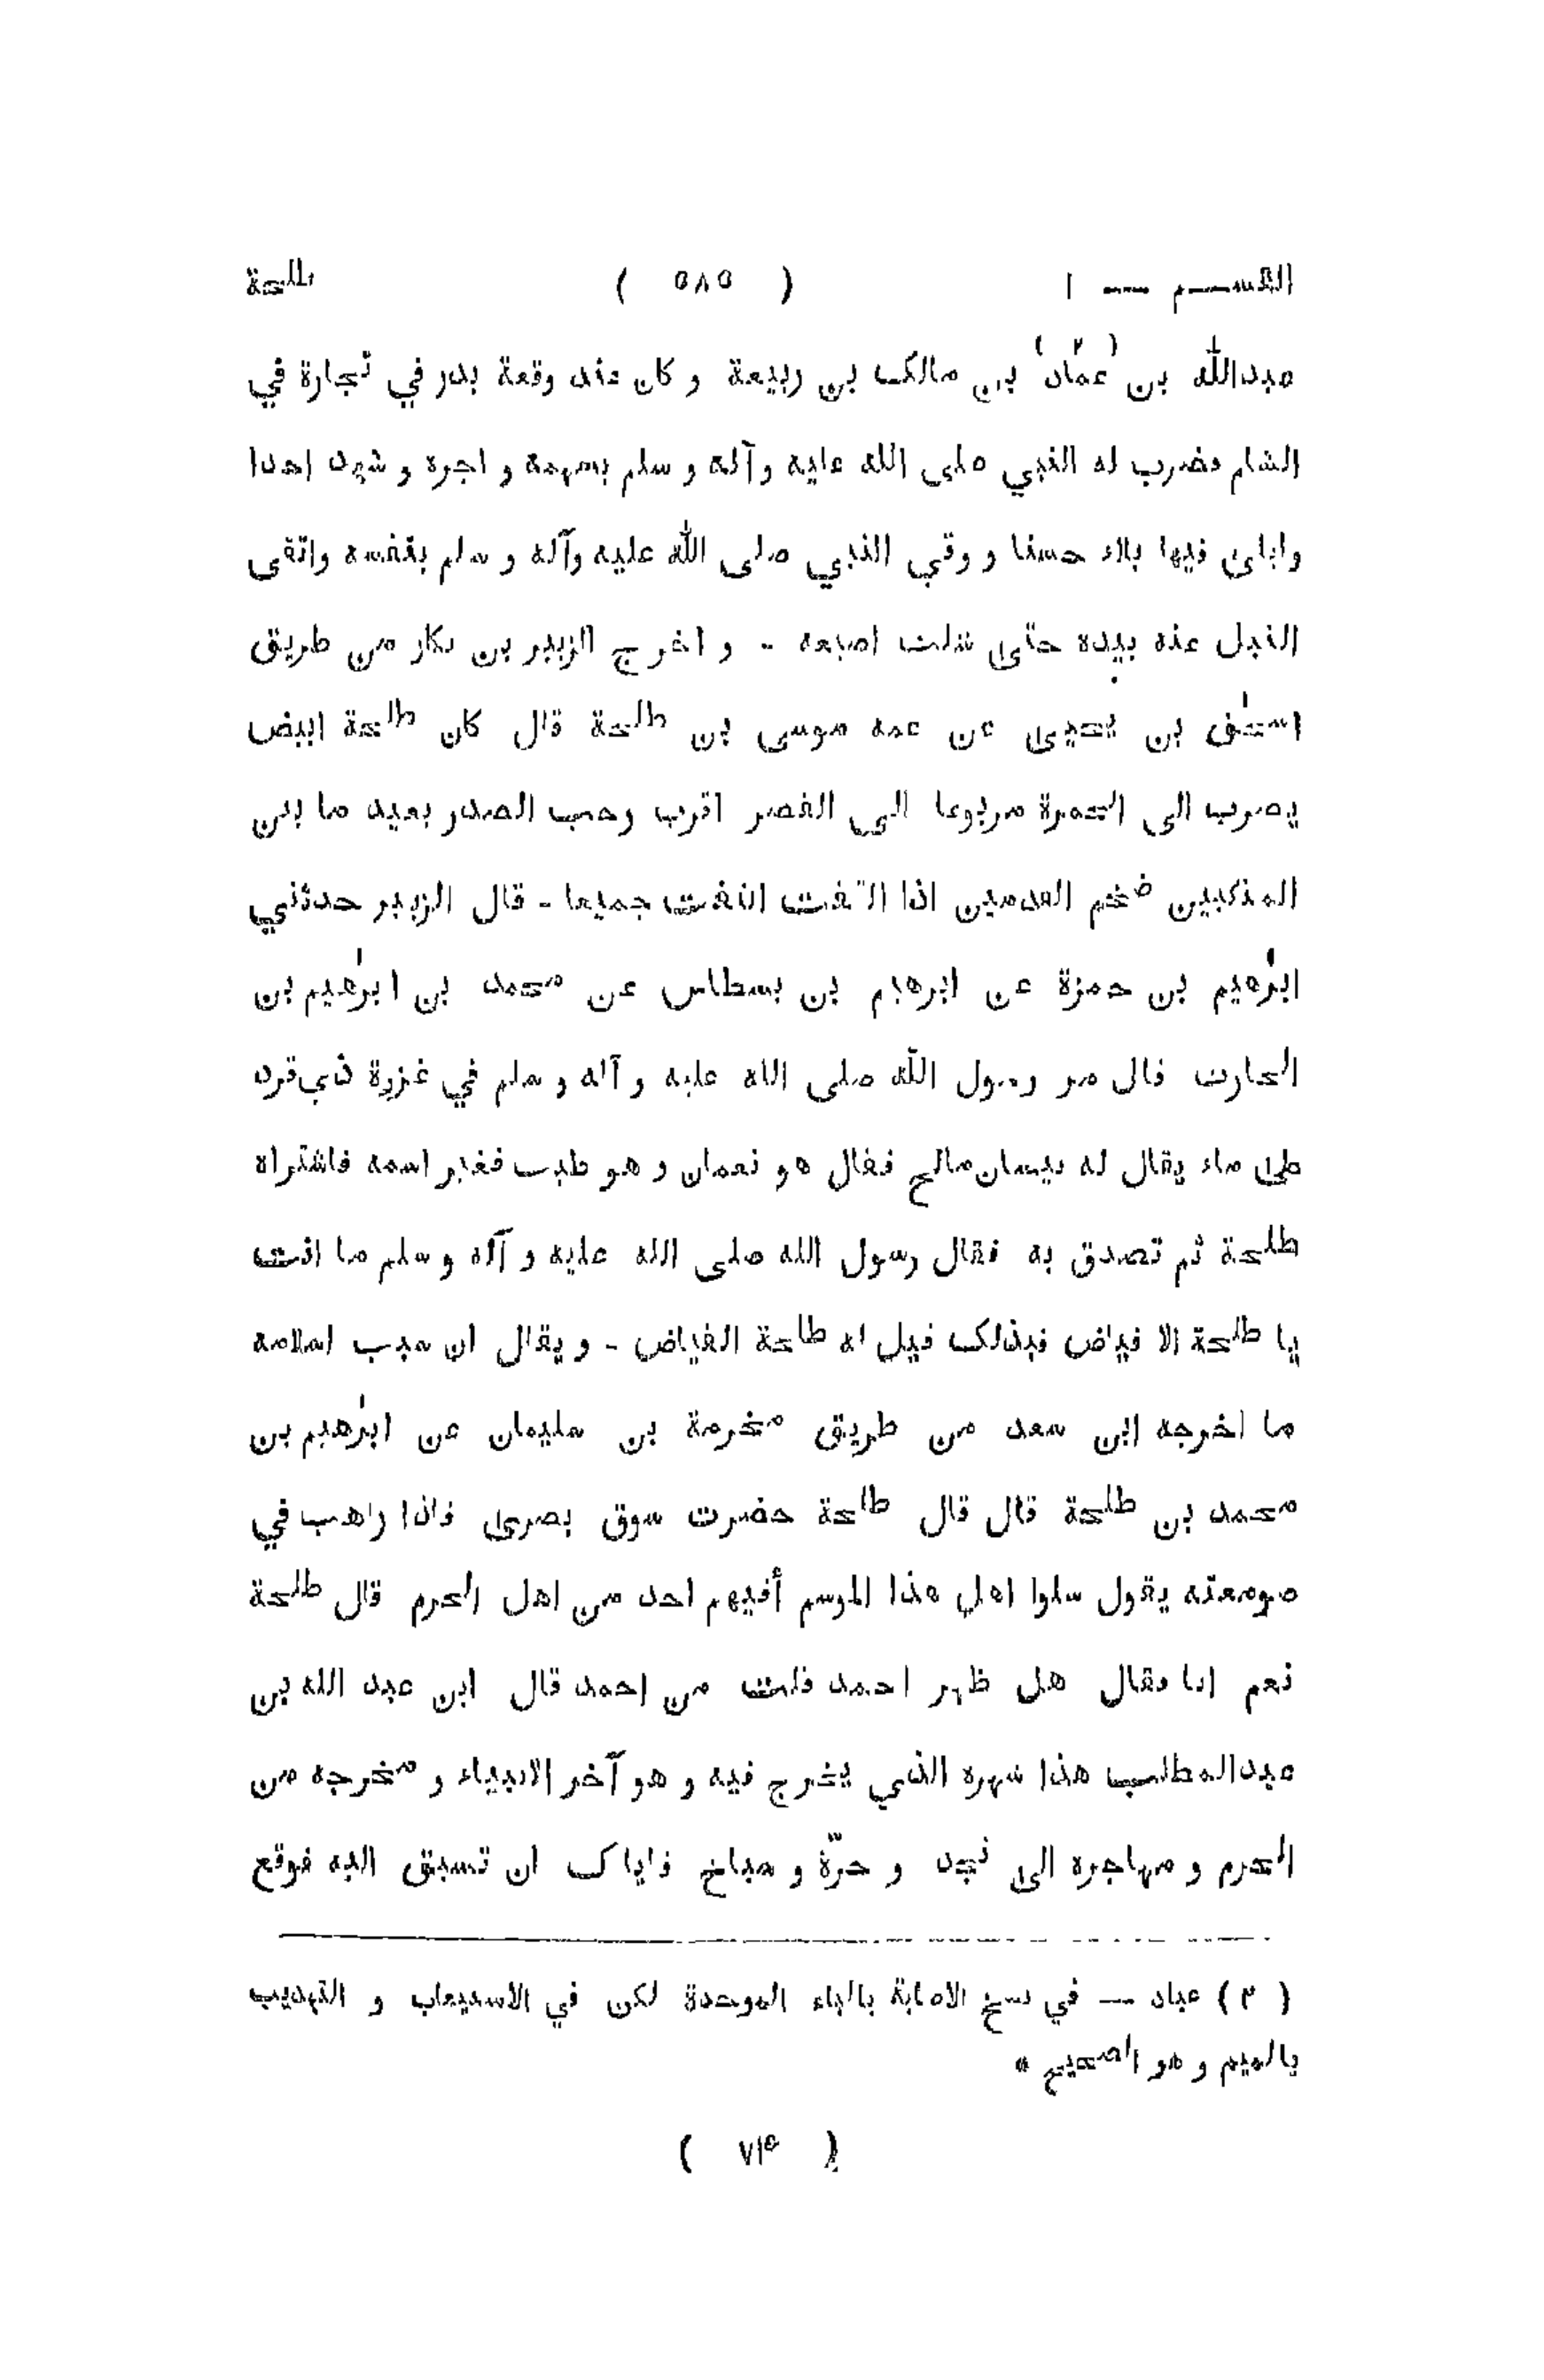 القســـم — ١ ( ٥٨٥ ) طلحة
عبدالله بن عماد (٢) بن مالك بن ربيعة و كان عند وقعة بدر في تجارة في
الشام فضرب له النبي صلى الله عليه وآله و سلم بسهمه و اجره و شهد احدا
وابلى فيها بلاء حسنا و وقى النبي صلى الله عليه وآله و سلم بنفسه واتقى
النبل عنه بيده حتى شلت اصبعه - و اخرج الزبير بن بكار من طريق
اسحٰق بن يحيى عن عمه موسى بن طلحة قال كان طلحة ابيض
يضرب الى الحمرة مربوعا الى القصر اقرب رحب الصدر بعيد ما بين
المنكبين ضخم القدمين اذا التفت التفت جميعا - قال الزبير حدثني
ابرٰهيم بن حمزة عن ابرهيم بن بسطاس عن محمد بن ابرٰهيم بن
الحارث قال مر رسول الله صلى الله عليه و آله و سلم في غزوة ذي قرد
على ماء يقال له بيسان مالح فقال هو نعمان و هو طيب فغير اسمه فاشتراه
طلحة ثم تصدق به فقال رسول الله صلى الله عليه و آله و سلم ما انت
يا طلحة الا فياض فبذلك قيل له طلحة الفياض - و يقال ان سبب اسلامه
ما اخرجه ابن سعد من طريق مخرمة بن سليمان عن ابرٰهيم بن
محمد بن طلحة قال قال طلحة حضرت سوق بصرى فاذا راهب في
صومعته يقول سلوا اهل هذا الموسم أفيهم احد من اهل الحرم قال طلحة
نعم انا فقال هل ظهر احمد قلت من احمد قال ابن عبد الله بن
عبدالمطلب هذا شهره الذي يخرج فيه و هو آخر الانبياء و مخرجه من
الحرم و مهاجره الى نجد و حرّة و سباخ فاياك ان تسبق اليه فوقع
( ٢ ) عباد — في نسخ الاصابة بالباء الموحدة لكن في الاستيعاب و التهذيب
بالميم و هو الصحيح *
( ٧١٤ )